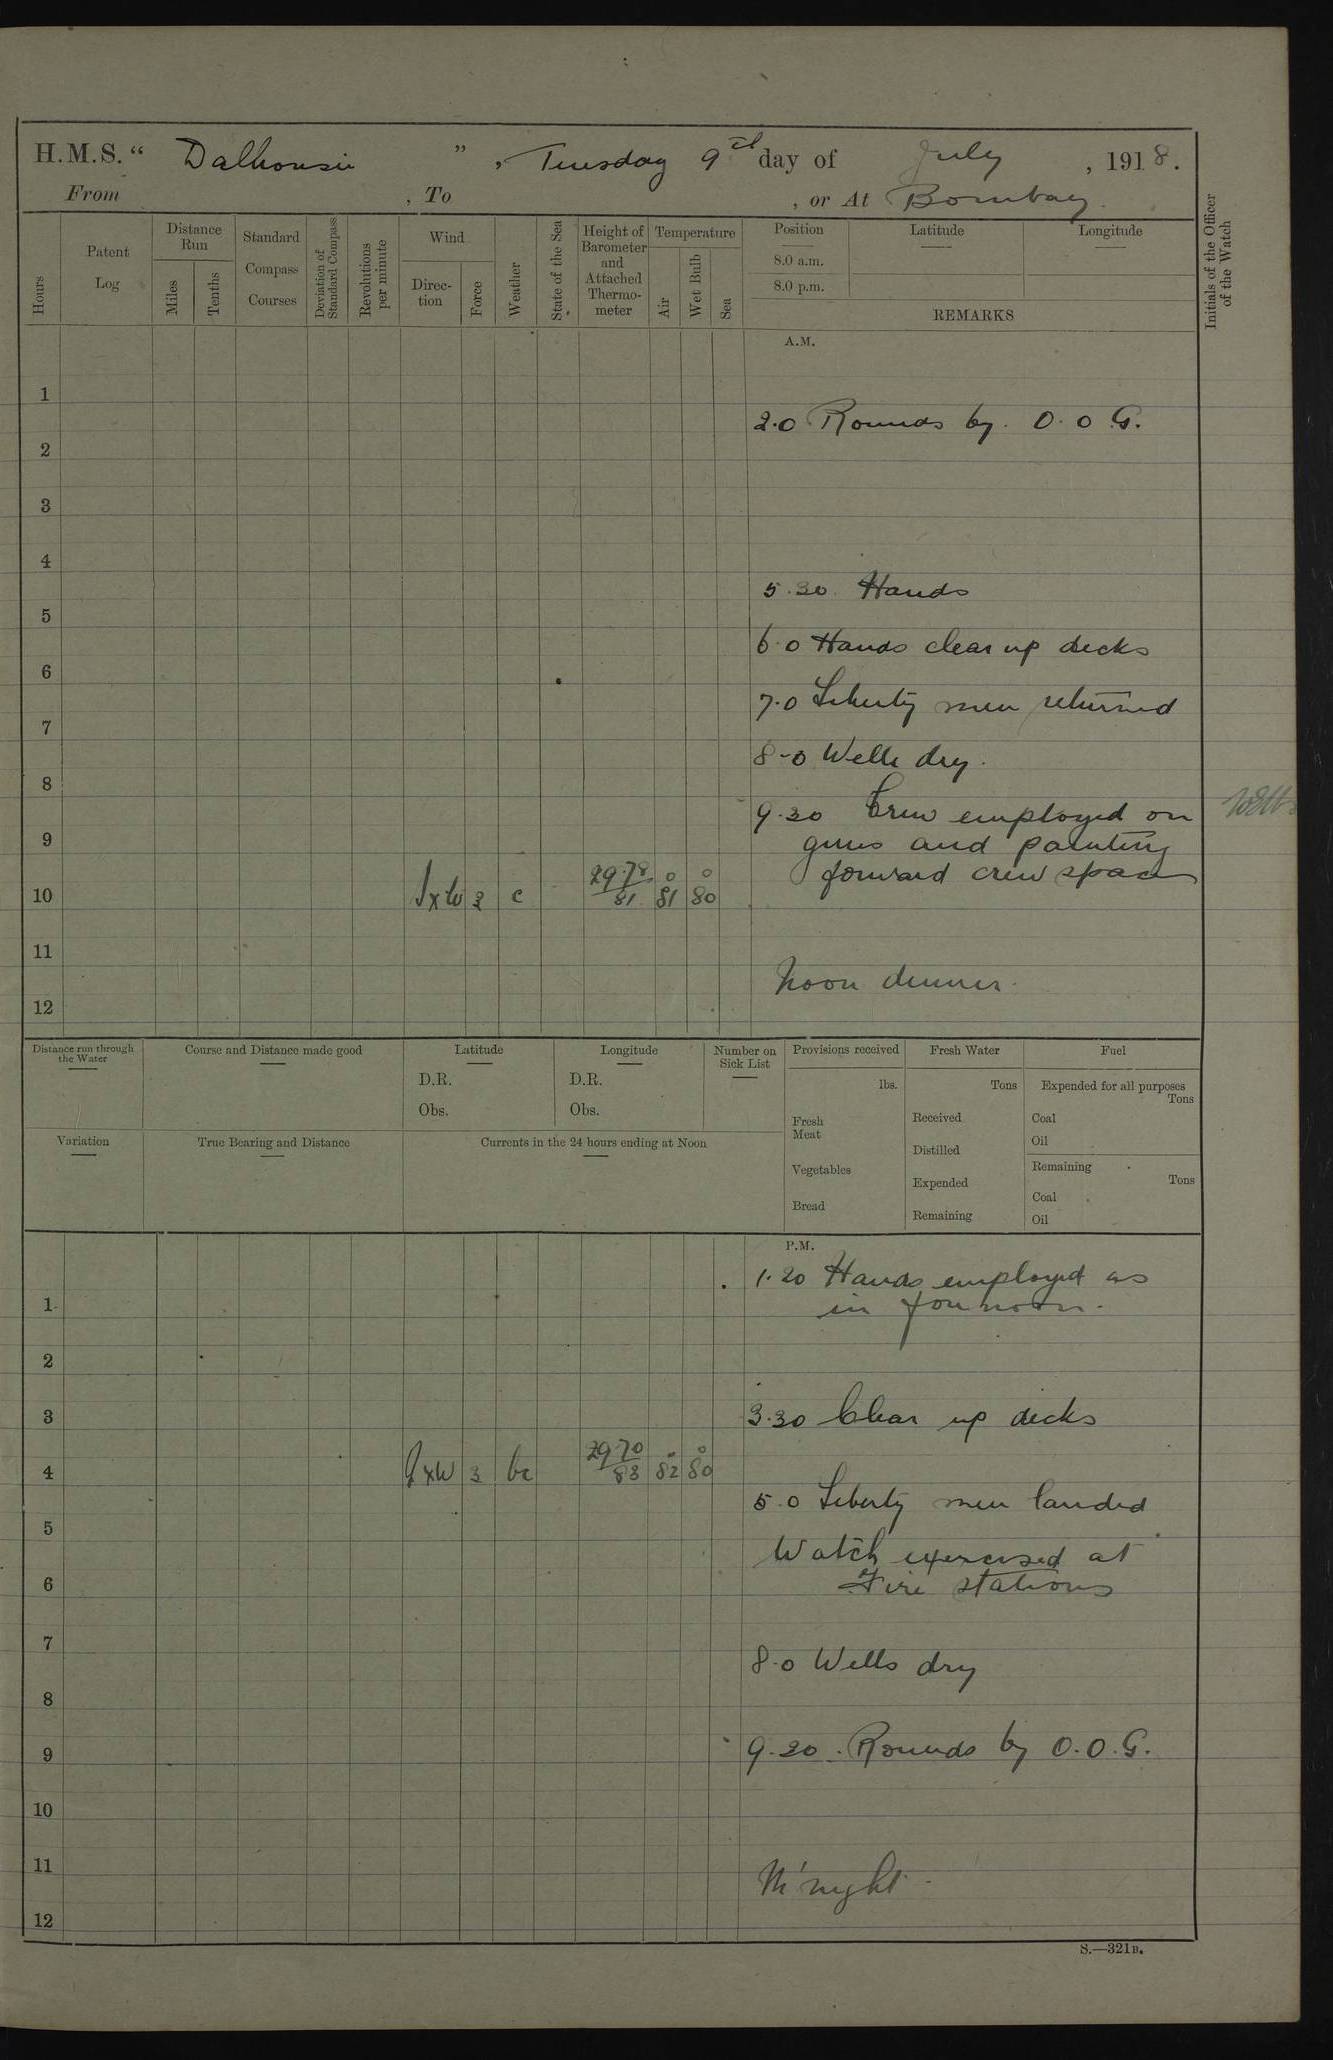 H.M.S. “ Dalhousie ”, Tuesday 9th day of July, 1918.
From , To , or At Bombay.
Hours
Patent Log
Distance Run
Miles
Tenths
Standard Compass Courses
Deviation of Standard Compass
Revolutions per minute
Wind
Direction
Force
Weather
State of the Sea
Height of Barometer and Attached Thermometer
Temperature
Air
Wet Bulb
Sea
Position
8.0 a.m.
8.0 p.m.
Latitude
Longitude
REMARKS
Initials of the Officer of the Watch
A.M.
1
2.0 Rounds by. O.O G.
2
3
4
5.30 Hands
5
6.0 Hands clear up decks
6
7.0 Liberty men returned
7
8-0 Wells dry.
8
9.30 Crew employed on
guns and painting
9
forward crew space
10 SxW 3 c 29.78 81 81° 80°
11
Noon dinner.
12
Distance run through the Water
Course and Distance made good
Latitude
D.R.
Obs.
Longitude
D.R.
Obs.
Number on Sick List
Provisions received
lbs.
Fresh Meat
Vegetables
Bread
Fresh Water
Tons
Received
Distilled
Expended
Remaining
Fuel
Expended for all purposes
Tons
Coal
Oil
Remaining
Tons
Coal
Oil
Variation
True Bearing and Distance
Currents in the 24 hours ending at Noon
P.M.
1.20 Hands employed as
1
in forenoon.
2
3
3.30 Clear up decks
4 SxW 3 bc 29.70 83 82° 80°
5.0 Liberty men landed
5
Watch exercised at
6
Fire stations
7
8.0 Wells dry
8
9.20. Rounds by O.O.G.
9
10
11
M'night.
12
S.—321B.